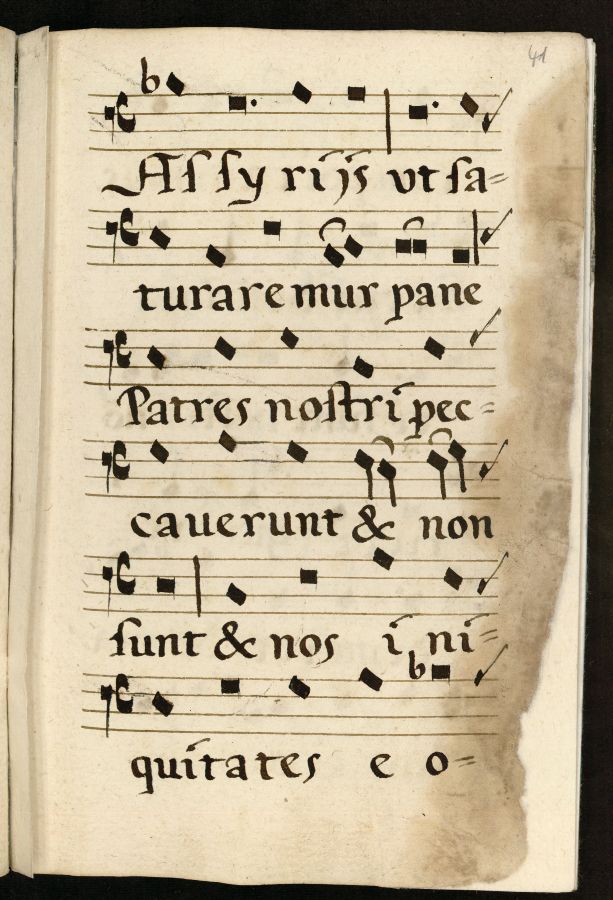 41
Aſſyrijs vt ſa=
turaremur pane
Patres noſtri pec=
cauerunt & non
ſunt & nos ini=
quitates eo=